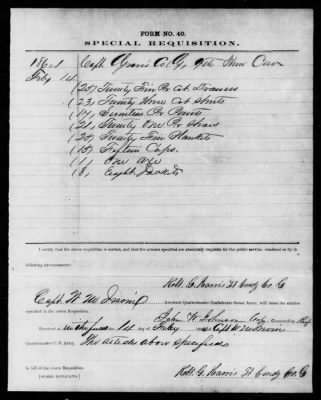 FORM NO. 40.
SPECIAL REQUISITION.
186
(25) Twenty Five Pr Cot Drawers
(23, Twenty Three Cot Shirts
(17, Seventeen Pr Pants
(21, Twenty One Pr
(25) Twenty Five Blankets
(15) Fifteen Caps
(1) One axe
(8, Eight Jackets
I certify that the above requisition is correct, and that the articles specified are absolutely requisite for the public service, rendered so by the following circumstances:
Robt. G. Harris Lt Comdg Co. G
Capt. W. M.
Assistant Quartermaster Confederate States Army, will issue the articles specified in the above Requisition.
John W. Johnson
Received 1st day of Feby
Quartermaster C. S. Army, The articles above specified
in full of the above Requisition.
Robt. G. Harris Lt Comdg Co. G
[SIGNED DUPLICATES.]